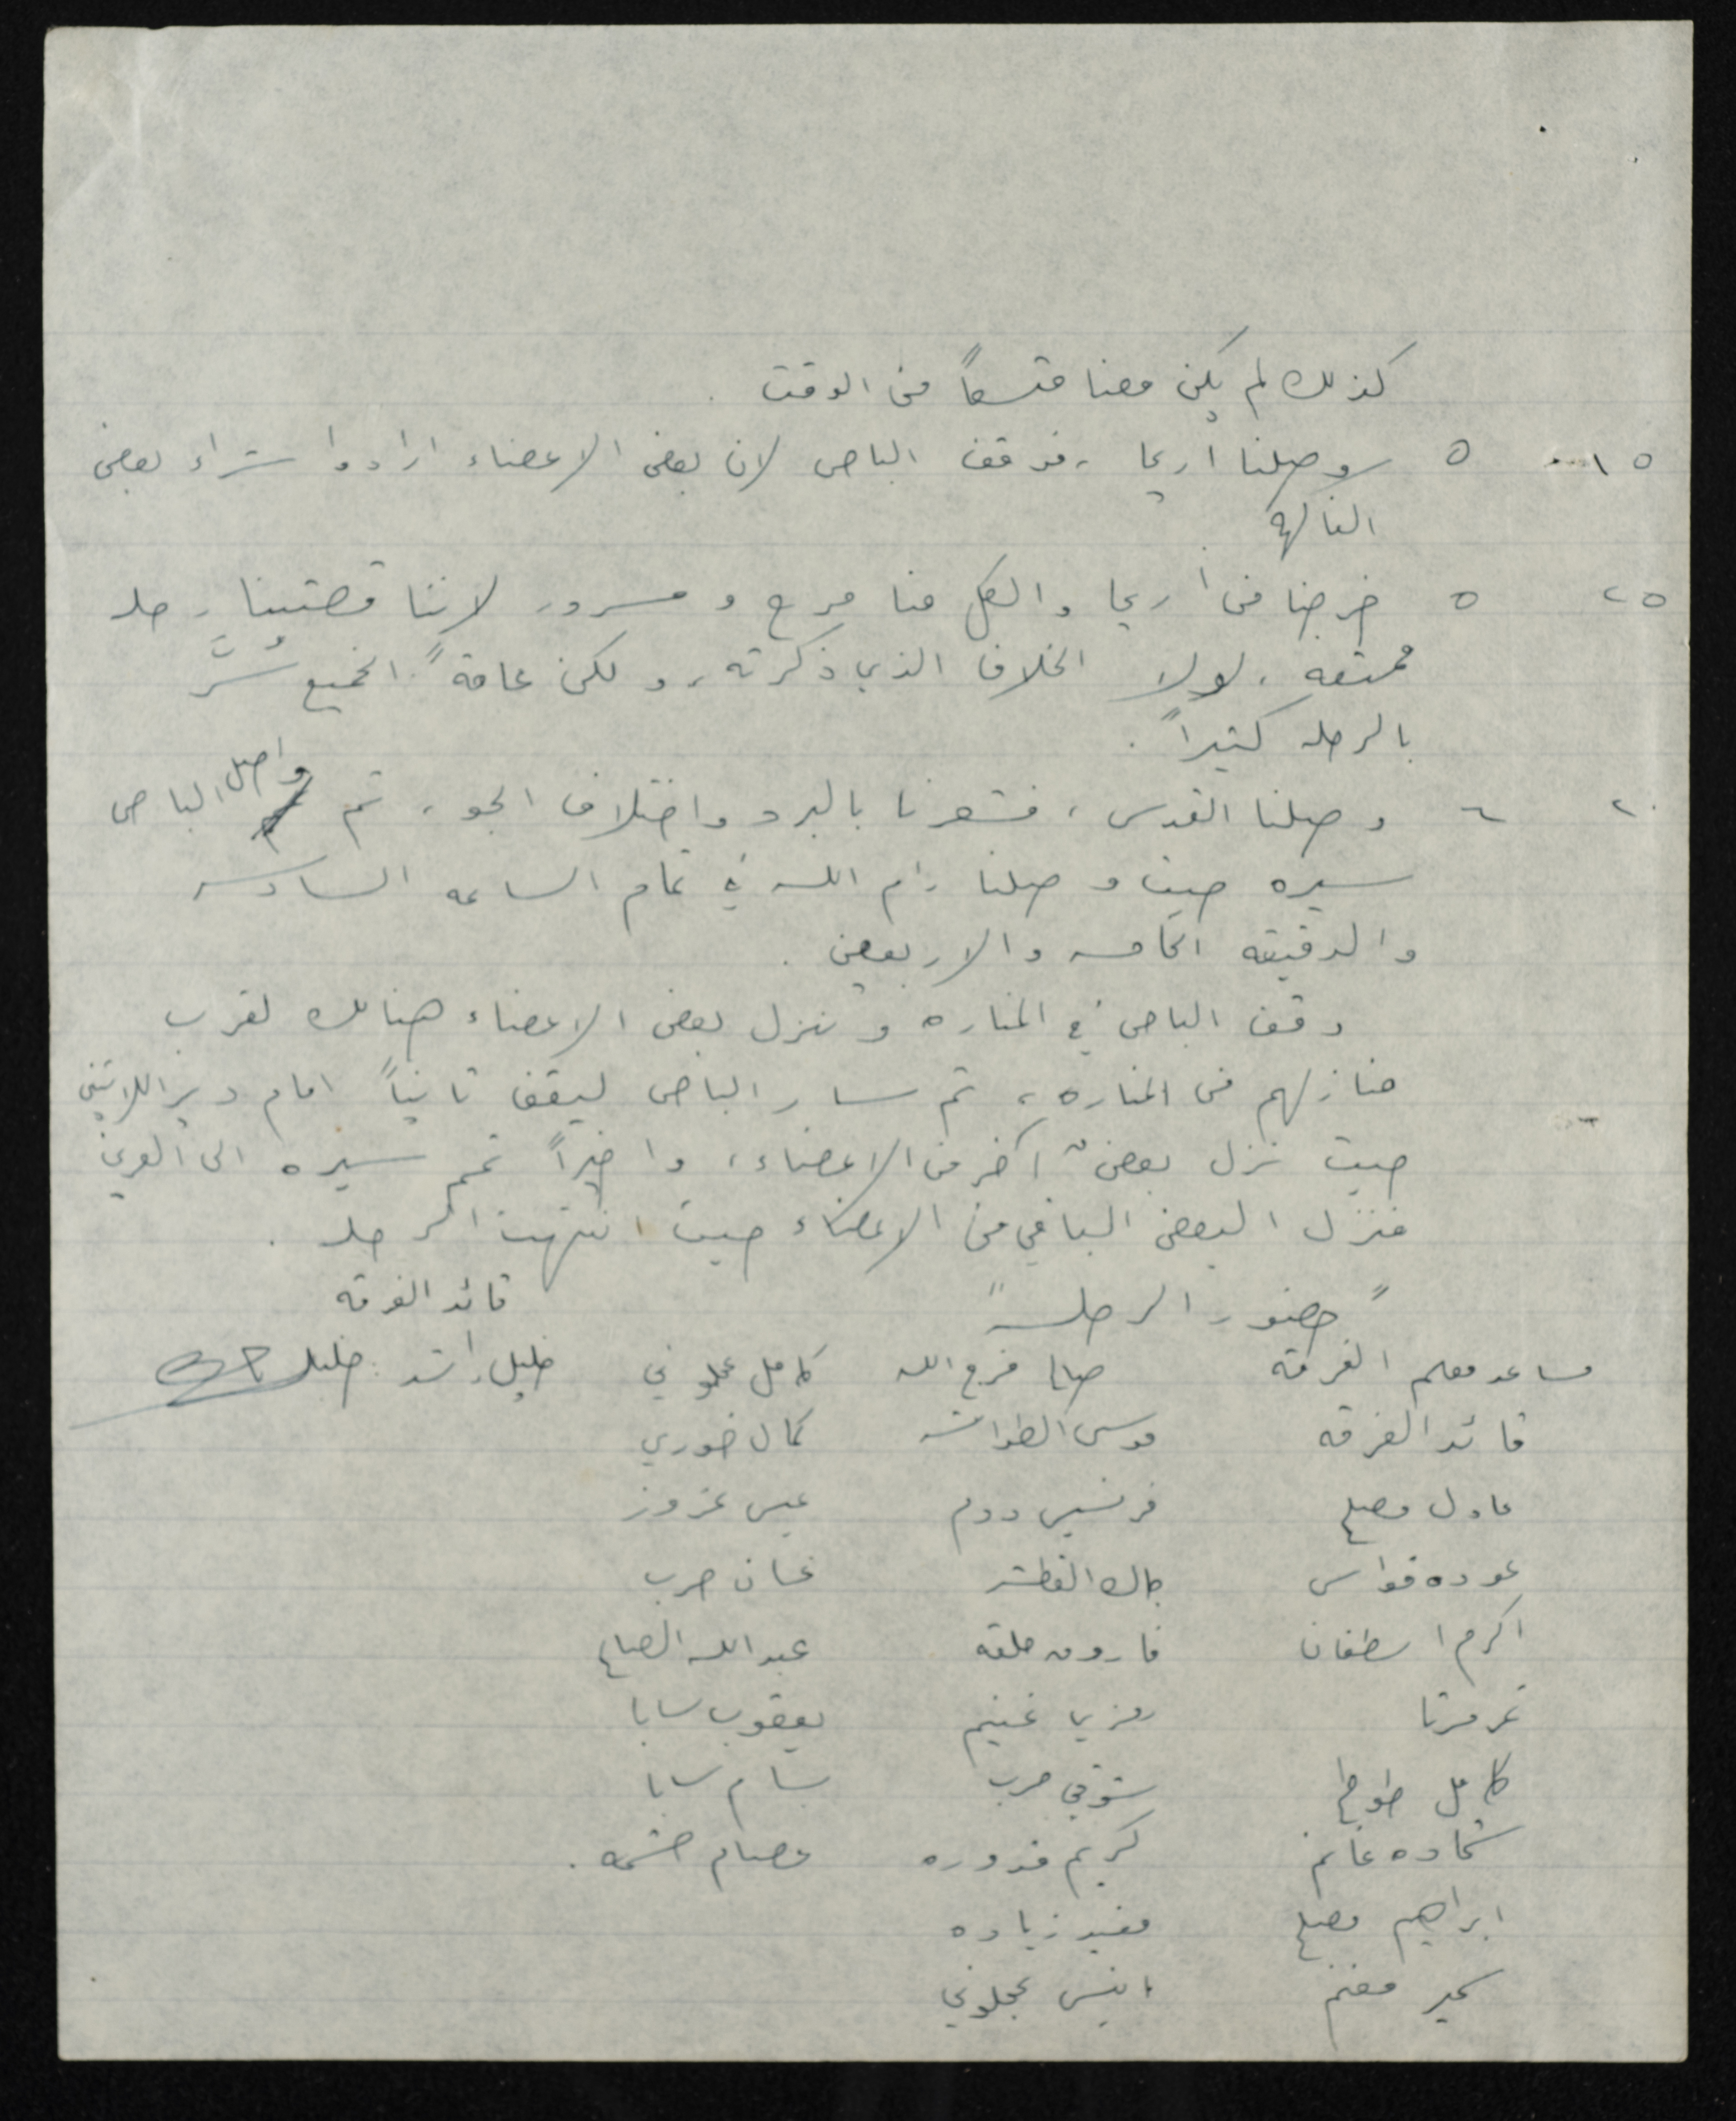 كذلك لم يكن معنا متسعاً من الوقت .
١٥ ٥ وصلنا اريحا ، فوقف الباص لان بعض الاعضاء ارادوا شراء بعض
الفاكهة
٢٥ ٥ خرجنا من أريحا والكل منا مرح و مسرور لاننا قضينا رحله
ممتعه ، لولا الخلاف الذي ذكرته ، ولكن عامةً الجميع سُرَّ
بالرحله كثيراً .
٢٠ ٦ وصلنا القدس ، فشعرنا بالبرد واختلاف الجو ، ثم واصل الباص
سيره حيث وصلنا رام الله في تمام الساعه السادسه
والدقيقه الخامسه والاربعين .
وقف الباص في المناره ونزل بعض الاعضاء هنالك لقرب
منازلهم من المناره ، ثم سار الباص ليقف ثانياً امام دير اللاتين
حيث نزل بعضٌ آخر من الاعضاء ، واخيراً تمم سيره الى العرين
فنزل البعض الباقي من الاعضاء حيث انتهت الرحله .
" حضور الرحله " قائد الفرقه
مساعد معلم الفرقه فرج الله كامل عجلوني خليل راشد : خليل
قائد الفرقه موسى الطواشه كمال خوري
عادل مصلح فرنسيس عيسى عزوز
عوده قواس جاك القطشه غسان حرب
اكرم اسطفان فاروق حلقه عبد الله الصاع
رمزي غنيم يعقوب سابا
كامل طوطح شوقي حرب بسام سابا
شحاده غانم كريم قدوره عصام حشمه .
ابراهيم مصلح مفيد زياده
سمير مغنم انيس عجلوني